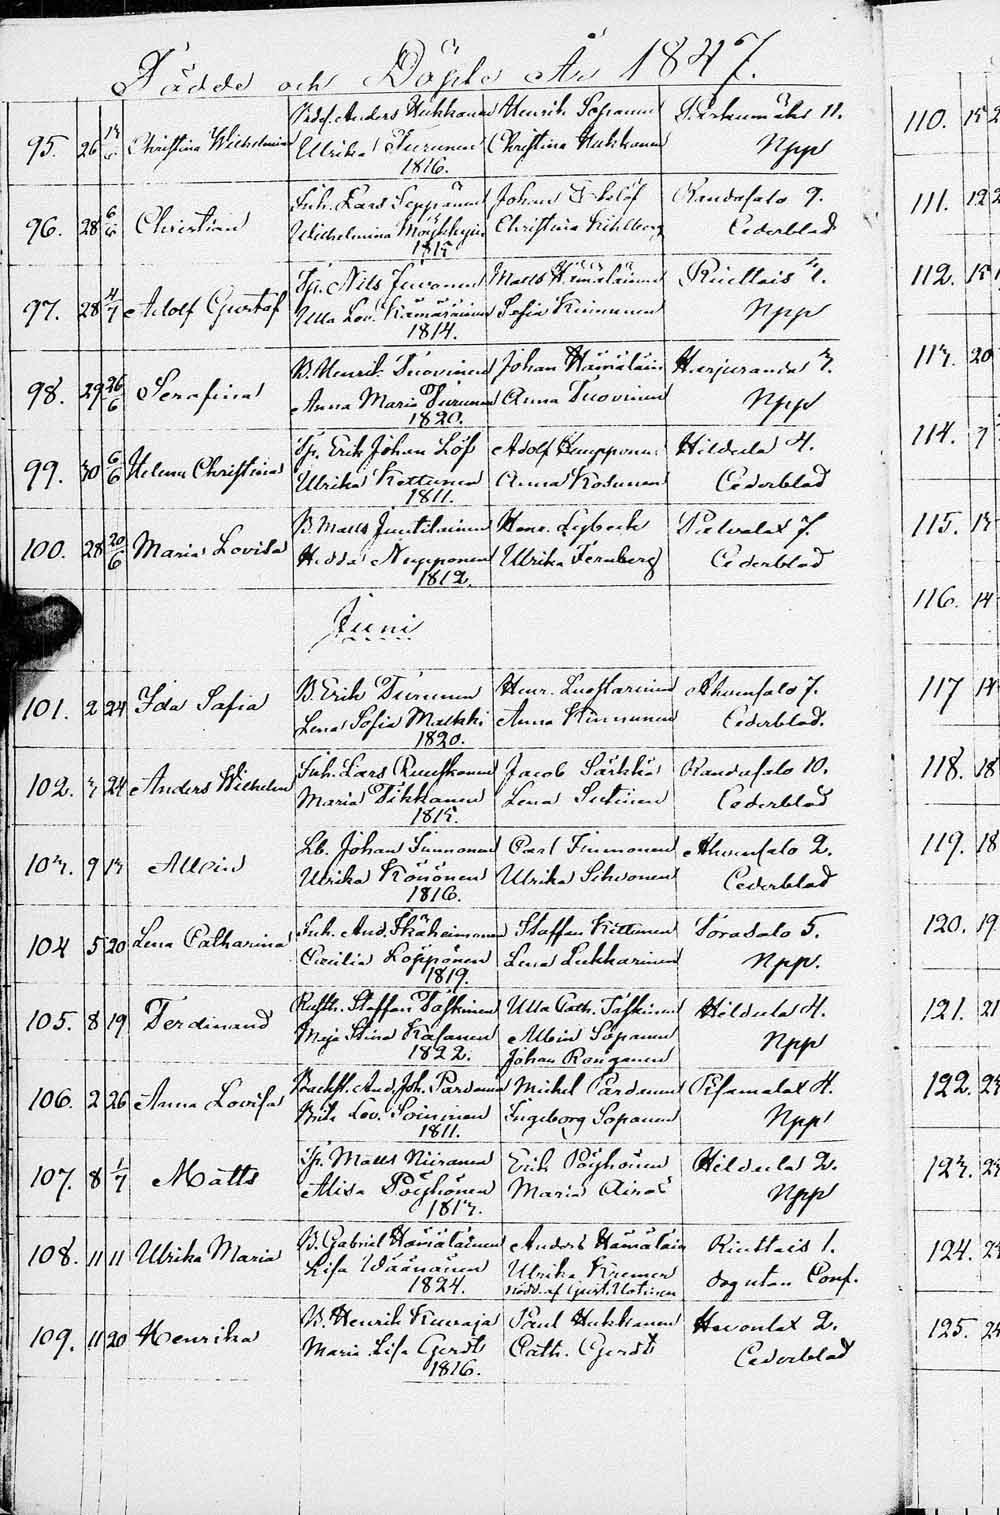 Födde och Döpte År 1847.
95. 26 13/6 Christina Wilhelmina Anders Hukkanen Henrik Sopanen 11.
Ulrika Turunen Christina Hukkanen Npp
1816.
96. 28 6/6 Christian Inh. Lars Seppänen Johan Ekelöf Randasalo 9.
Wilhelmina Christina Kihlberg Cederblad
1815
97. 28 4/7 Adolf Gustaf Tp. Nils Turonen Matts Hämäläinen Riuttais
Ulla Lov. Kämäräinen Sofia Kinnunen Npp
1814.
98. 29 26/6 Serafina B. Henrik Tuovinen Johan Hämäläin Harjuranda 3.
Anna Maria Turunen Anna Tuovinen Npp
1820.
99. 30 6/6 Helena Christina Tp. Erik Johan Löf Adolf Kumpponen Hildula 4.
Ulrika Kettunen Anna Kosunen Cederblad
1811.
100. 28 20/6 Maria Lovisa B. Matts Juntilainen Henr. Lybeck 7.
Hedda Nupponen Ulrika Fernberg Cederblad
1812.
Juni
101. 2 24 Ida Sofia B. Erik Turunen Henr. Luostarinen Ahvensalo 7.
Lena Sofia Markki Anna Kinnunen Cederblad.
1820.
102. 3 24 Anders Wilhelm Inh. Lars Ruuskanen Jacob Särkkä Randasalo 10.
Maria Tikkanen Lena Sutinen Cederblad
1815.
103. 9 13 Albin Lb. Johan Timmonen Carl Timmonen Ahvensalo 2.
Ulrika Könönen Ulrika Sihvonen Cederblad
1816.
104 5 20 Lena Catharina Inh. And. Staffan Kettunen Torasalo 5.
Cecilia Löppönen Lena Lukkarinen Npp.
1819.
105. 8 19 Ferdinand Rusth. Staffan Taskinen Ulla Cath. Taskinen Hildula 4.
Maja Stina Käsanen Albin Sopanen Npp
1822. Johan Ronganen
106. 2 26 Anna Lovisa Backst. And. Joh. Pardanen Michel Pardanen 4.
Brita Lov. Soininen Ingeborg Sopanen Npp
1811.
107. 8 1/7 Matts Tp. Matts Niiranen Erik Pöyhönen Hildula 2.
Alisa Pöyhönen Maria Airas Npp
1813.
108. 11 11 Ulrika Maria B. Gabriel Hämäläinen Anders Hämäläin Riuttais 1.
Lisa Wäänänen Ulrika Kremer dog utan Conf.
1824. nöd. af Gust. Uotinen
109. 11 20 Henrika B. Henrik Kuvaja Paul Hukkanen Havonlax 2.
Maria Lisa Gerdt Cath. Gerdt Cederblad
1816.
110. 15
111. 12
112. 15
113. 20
114. 7
115. 13
116. 14
117 14
118. 18
119. 18
120. 19
121. 21
122. 23
123. 23
124. 23
125. 23